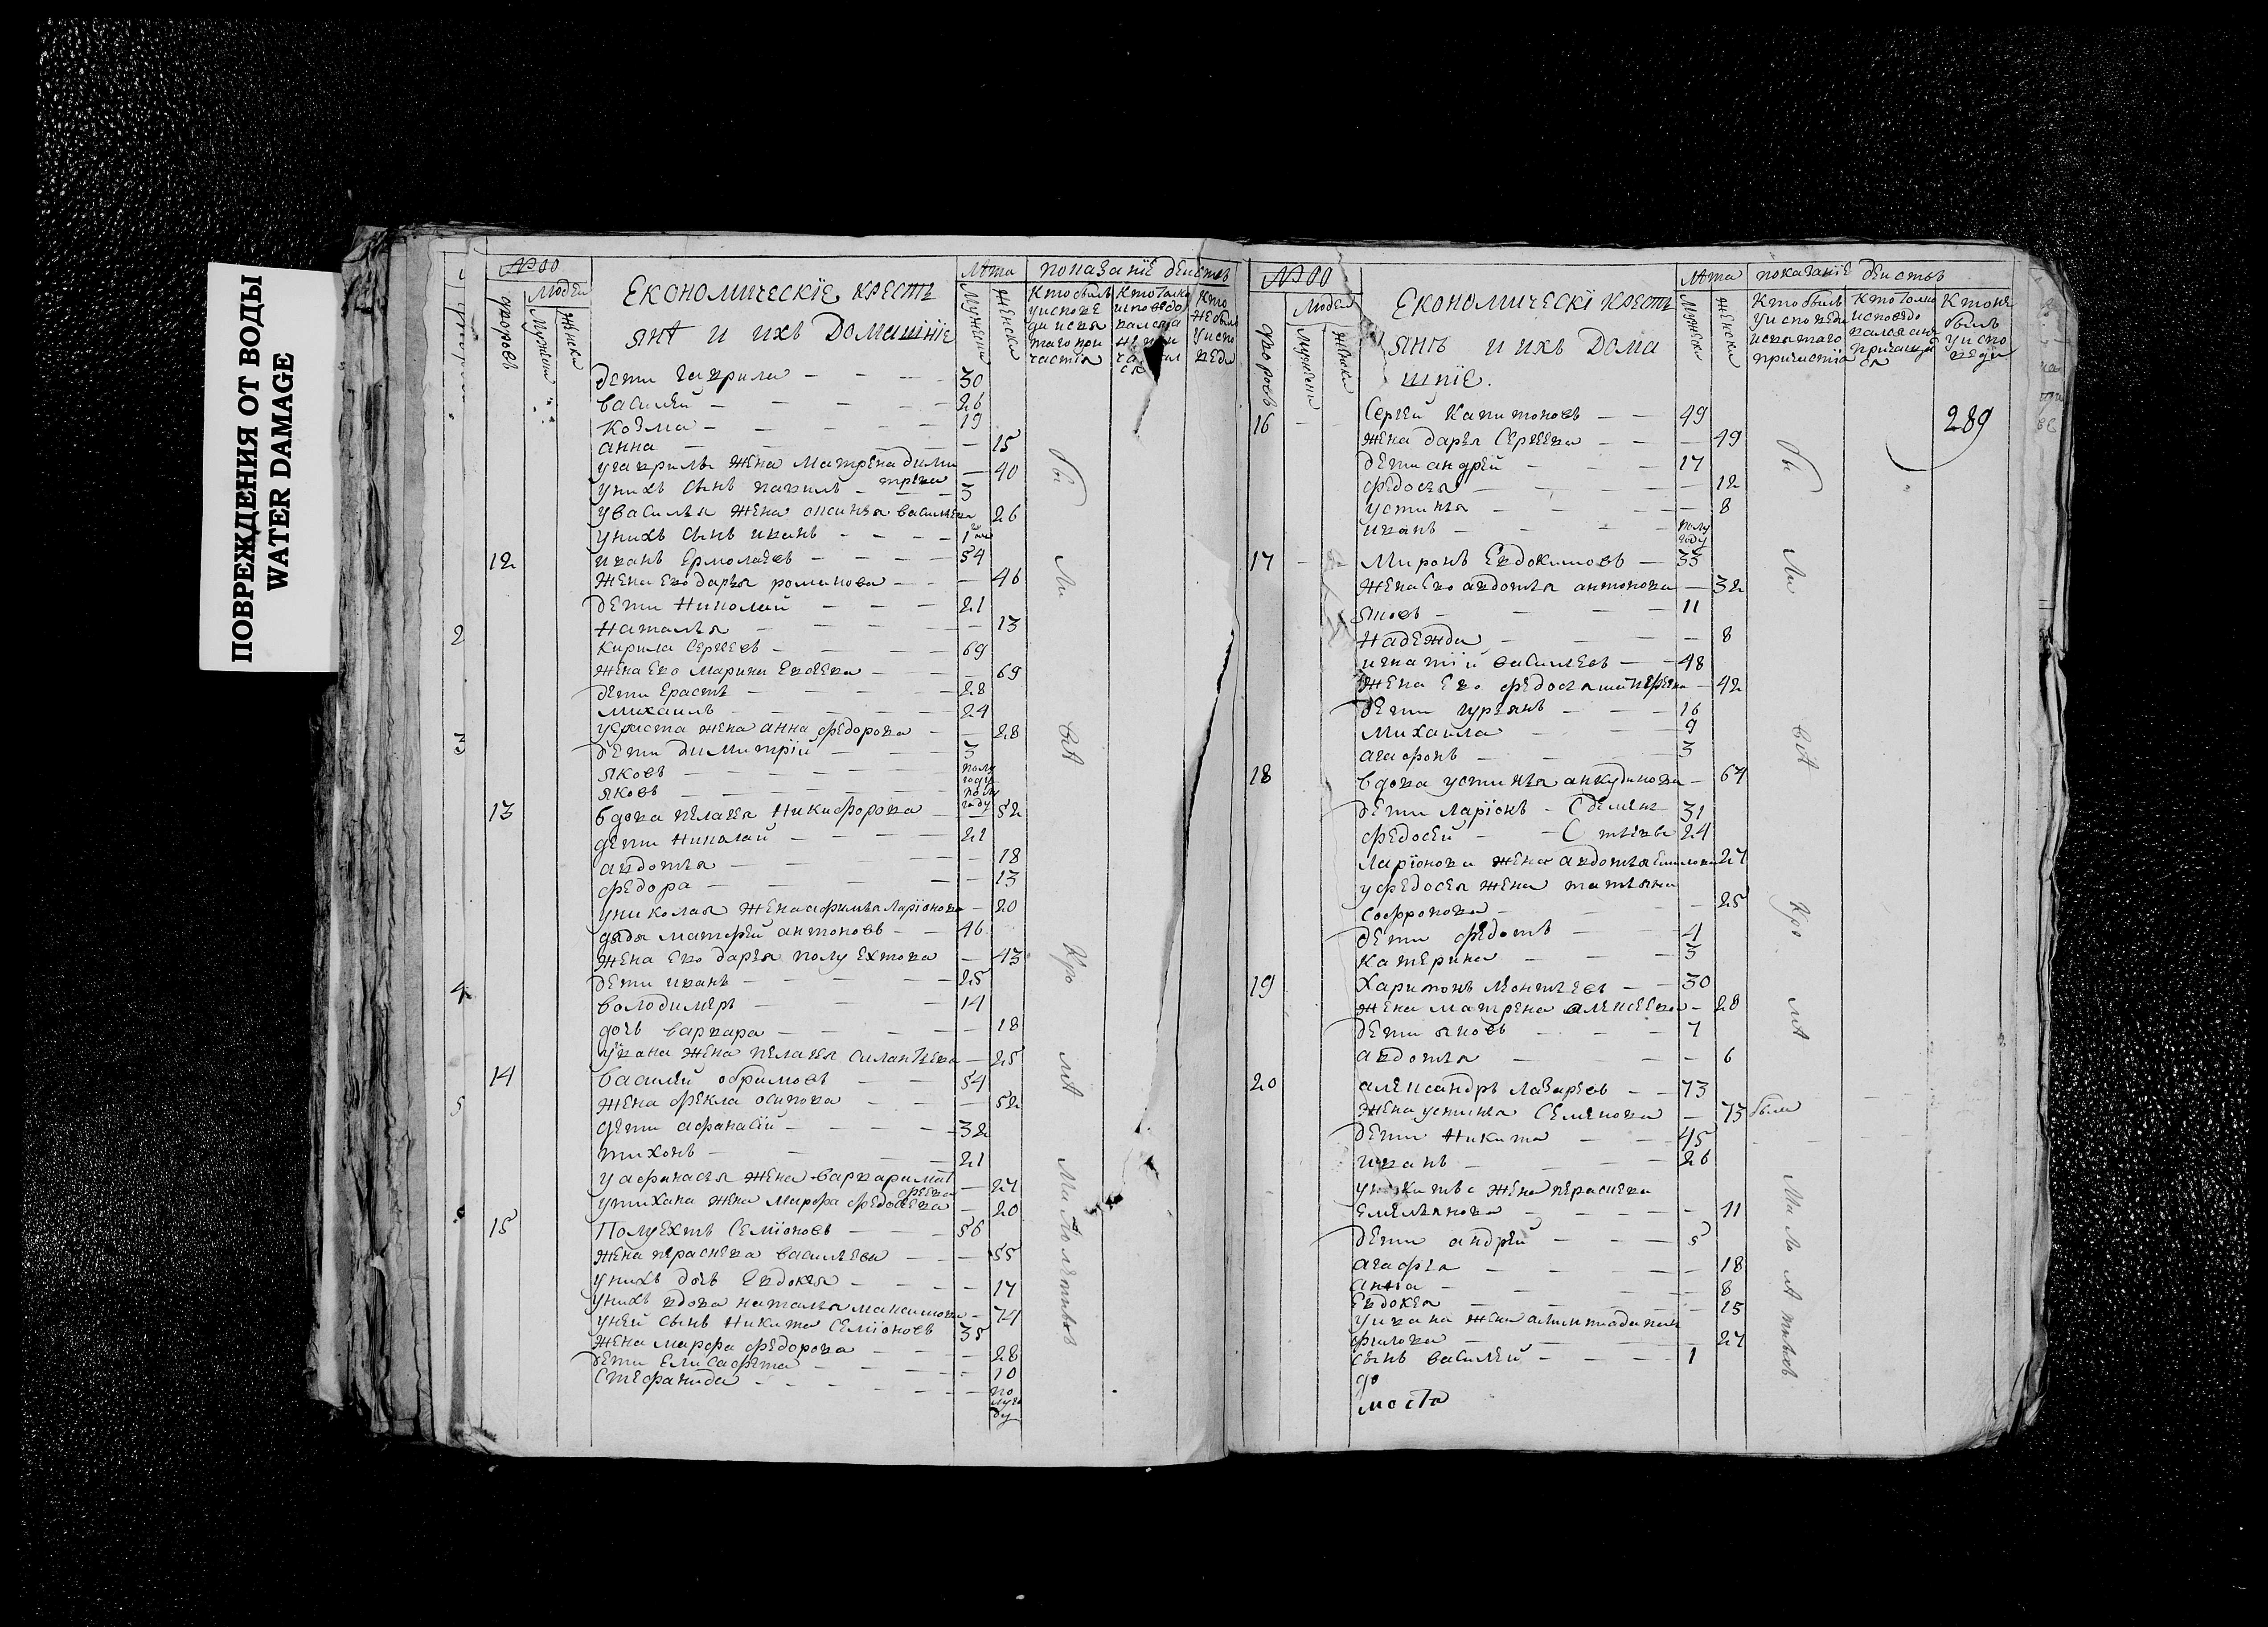 ПОВРЕЖДЕНИЯ ОТ ВОДЫ
WATER DAMAGE
№00
Людей
дворовъ
Мужеска
Женска
Економическїе крестъ
янѣ и ихъ домашнїе
Лѣта
Мужеска
Женска
показанїе действъ
Кто былъ
у исповѣ
ди и свя
таго при
частїя
Кто токмо
исповѣдо
вался а
не при
ча щал
ся
Кто
не былъ
у испо
веди
дети гаврила 30
василей 26
козма 19
анна 15
у гаврилы жена матрена дими
трева 40
у нихъ сынъ павилъ 3
у василья жена аксинья васильева 26
у нихъ сынъ иванъ 1
12 иванъ Ермолаевъ 54
жена Ево дарья романова 46
дети Николай 21
Наталья 13
Кирила Сергеевъ 69
жена Ево Марина 69
дети Ерастъ 28
михаилъ 24
у Ераста жена анна федорова 28
дети димитрїй 3
яковъ полу году
яковъ полу году
13 вдова пелагея Никифорова 52
дети Николай 21
авдотья 18
федора 13
у николая жена афимья Ларїонова 20
дядя матфей антоновъ 46
жена Ево дарья полуехтова 43
дети иванъ 25
володимеръ 14
дочь варвара 18
у ивана жена пелагея силантьева 25
14 василей 54
жена фекла осипова 52
дети афанасїй 32
тихонъ 21
у афанасья жена варвара мат
феева 27
у тихана жена марфа федосеева 20
15 Полуехтъ Семїоновъ 56
жена парасковья васильева 55
у нихъ дочь Евдокея 17
у нихъ вдова наталья максимова 74
у ней сынъ Никита Семїоновъ 35
жена марфа федорова 28
дети Елисафета 10
Стефанида по лу го ду
бы
ли
всѣ
Кро
мѣ
Ма
лолѣтныхъ
2
3
4
5
№00
Людей
дворовъ
Мужеска
Женска
Економическї крестъ
янъ и ихъ дома
шнїе.
Лѣта
Мужеска
Женска
показанїе действъ
Кто былъ
у исповеди
и святаго
причастїя
Кто токмо
исповѣдо
вался а не
причащал
ся
Кто не
былъ
у испо
веди
289
16 Сергей Капитоновъ 49
жена дарья Сергеева 49
дети андрей 17
федосья 12
устинья 8
иванъ полу году
17 Миронъ Евдокимовъ 33
жена Ево авдотья антонова 32
яковъ 11
Надежда 8
игнатїй васильевъ 48
жена Ево федосья 42
дети гурьянъ 16
михаила 9
агафонъ 3
18 вдова устинья анкудинова 67
дети ларїонъ 31
федосей 24
Ларїонова жена авдотья 27
у федосея жена татьяна
Софронова 25
дети федотъ 4
катерина 3
19 Харитонъ Леонтьевъ 30
жена матрена алексеева 28
дети яковъ 7
авдотья 6
20 александръ лазаревъ 73
жена устинья Семенова 73 были
дети Никита 45
иванъ 26
у никиты жена параскева
емельянова 11
дети андрей 5
агафья 18
анна 8
Евдокея 15
у ивана жена
филова 27
сынъ василей 1
до
моста
бы
ли
всѣ
Кро
мѣ
Ма
ло
лѣтныхъ